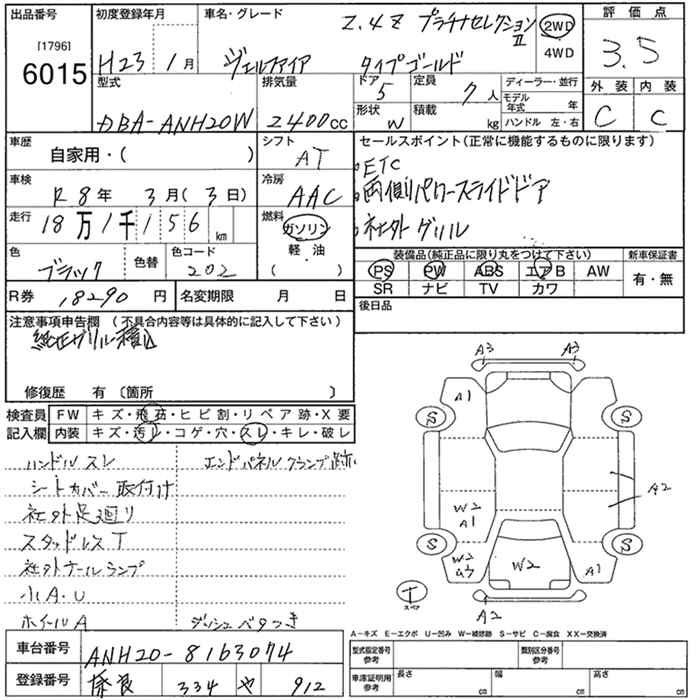 出品番号 [1796] 6015
初度登録年月 H23年 1月
車名・グレード 2.4Z プラチナセレクションII
ヴェルファイア タイプゴールド
2WD 4WD
評価点 3.5
外装 C 内装 C
型式 DBA-ANH20W
排気量 2400cc
ドア 5
形状 W
定員 7人
積載 kg
ディーラー・並行
モデル年式 年
ハンドル 左・右
車歴 自家用・( )
シフト AT
車検 R8年 3月(3日)
冷房 AAC
走行 18万1千156km
燃料 ガソリン 軽・油 ( )
色 ブラック 色替
色コード 202
R券 18290円
名変期限 月 日
セールスポイント(正常に機能するものに限ります)
・ETC
・両側パワースライドドア
・社外グリル
装備品(純正品に限り丸をつけて下さい)
PS PW ABS エアB AW
SR ナビ TV カワ
新車保証書 有・無
後日品
注意事項申告欄 (不具合内容等は具体的に記入して下さい)
純正グリル積込
修復歴 有 〔箇所 〕
検査員記入欄
FW キズ・飛石・ヒビ割・リペア跡・X要
内装 キズ・汚レ・コゲ・穴・スレ・キレ・破レ
ハンドルスレ
エンドパネルクランプ跡
シートカバー取付け
社外足廻り
スタッドレスT
社外テールランプ
小A・U
ホイールA
ダッシュベタつき
A3 A3
A1
S S
A2
W2
A1
S S
W2
U3
W2
A1
T
スペア
A2
A-キズ E-エクボ U-凹み W-補修跡 S-サビ C-腐食 XX-交換済
車台番号 ANH20-8163074
登録番号 334 や 912
型式指定番号 参考
類別区分番号 参考
車庫証明用 参考
長さ cm 幅 cm 高さ cm